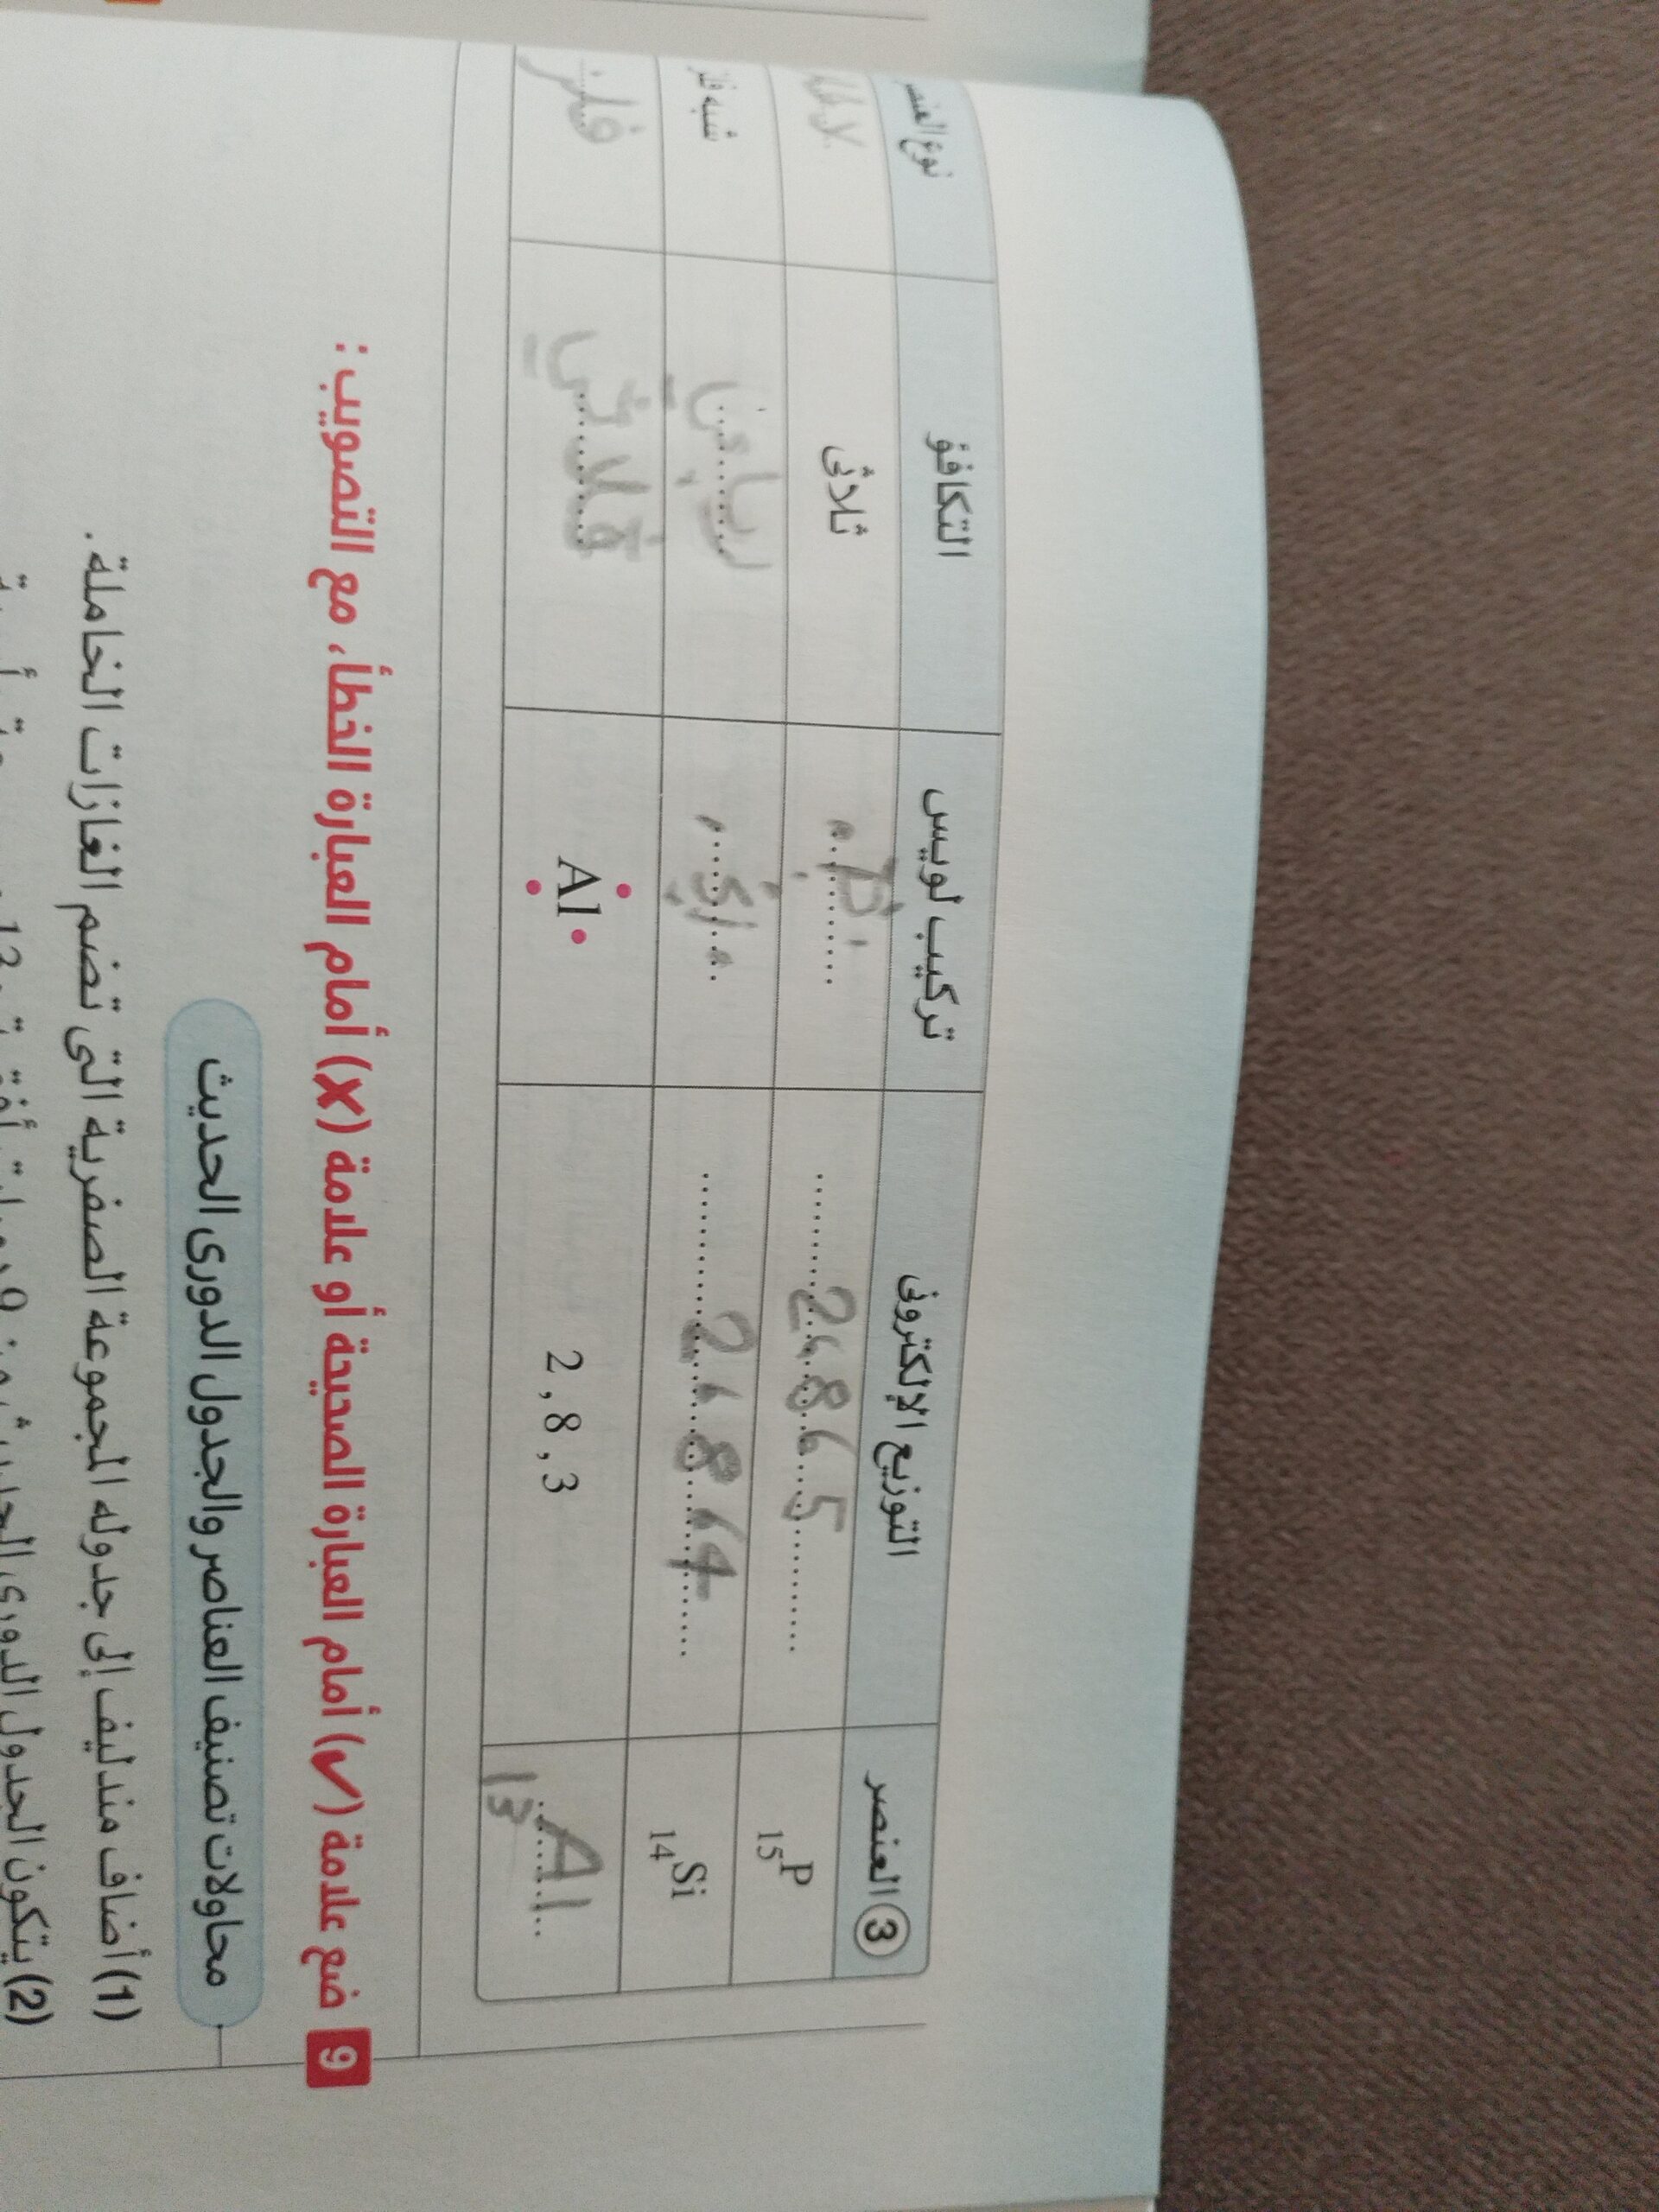 ③ العنصر التوزيع الإلكترونى تركيب لويس التكافؤ نوع
15P 2، 8، 5 P ثلاثى
14Si 2، 8، 4 Si رباعى شبه
13Al 2 , 8 , 3 Al ثلاثي فلز
9 ضع علامة (✓) أمام العبارة الصحيحة أو علامة (✗) أمام العبارة الخطأ، مع التصويب :
محاولات تصنيف العناصر والجدول الدورى الحديث
(1) أضاف مندليف إلى جدوله المجموعة الصفرية التى تضم الغازات الخاملة.
(2) يتكون الجدول الدورى